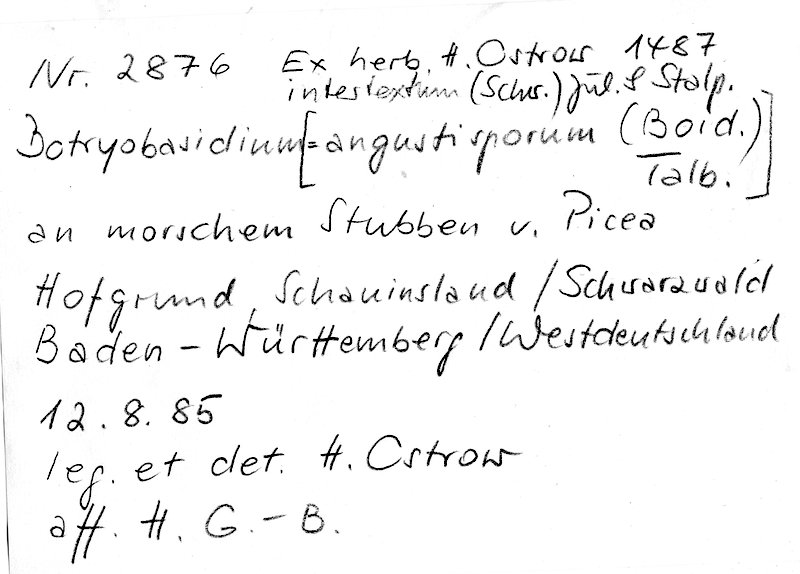 Nr. 2876 Ex herb. H. Ostrow 1487
intertextum (Schw.) Jül. & Stalp.
Botryobasidium [= angustisporum (Boid.)
Talb. ]
an morschem Stubben v. Picea
Hofgrund, Schauinsland / Schwarzwald
Baden - Württemberg / Westdeutschland
12. 8. 85
leg. et det. H. Ostrow
aff. H. G. - B.